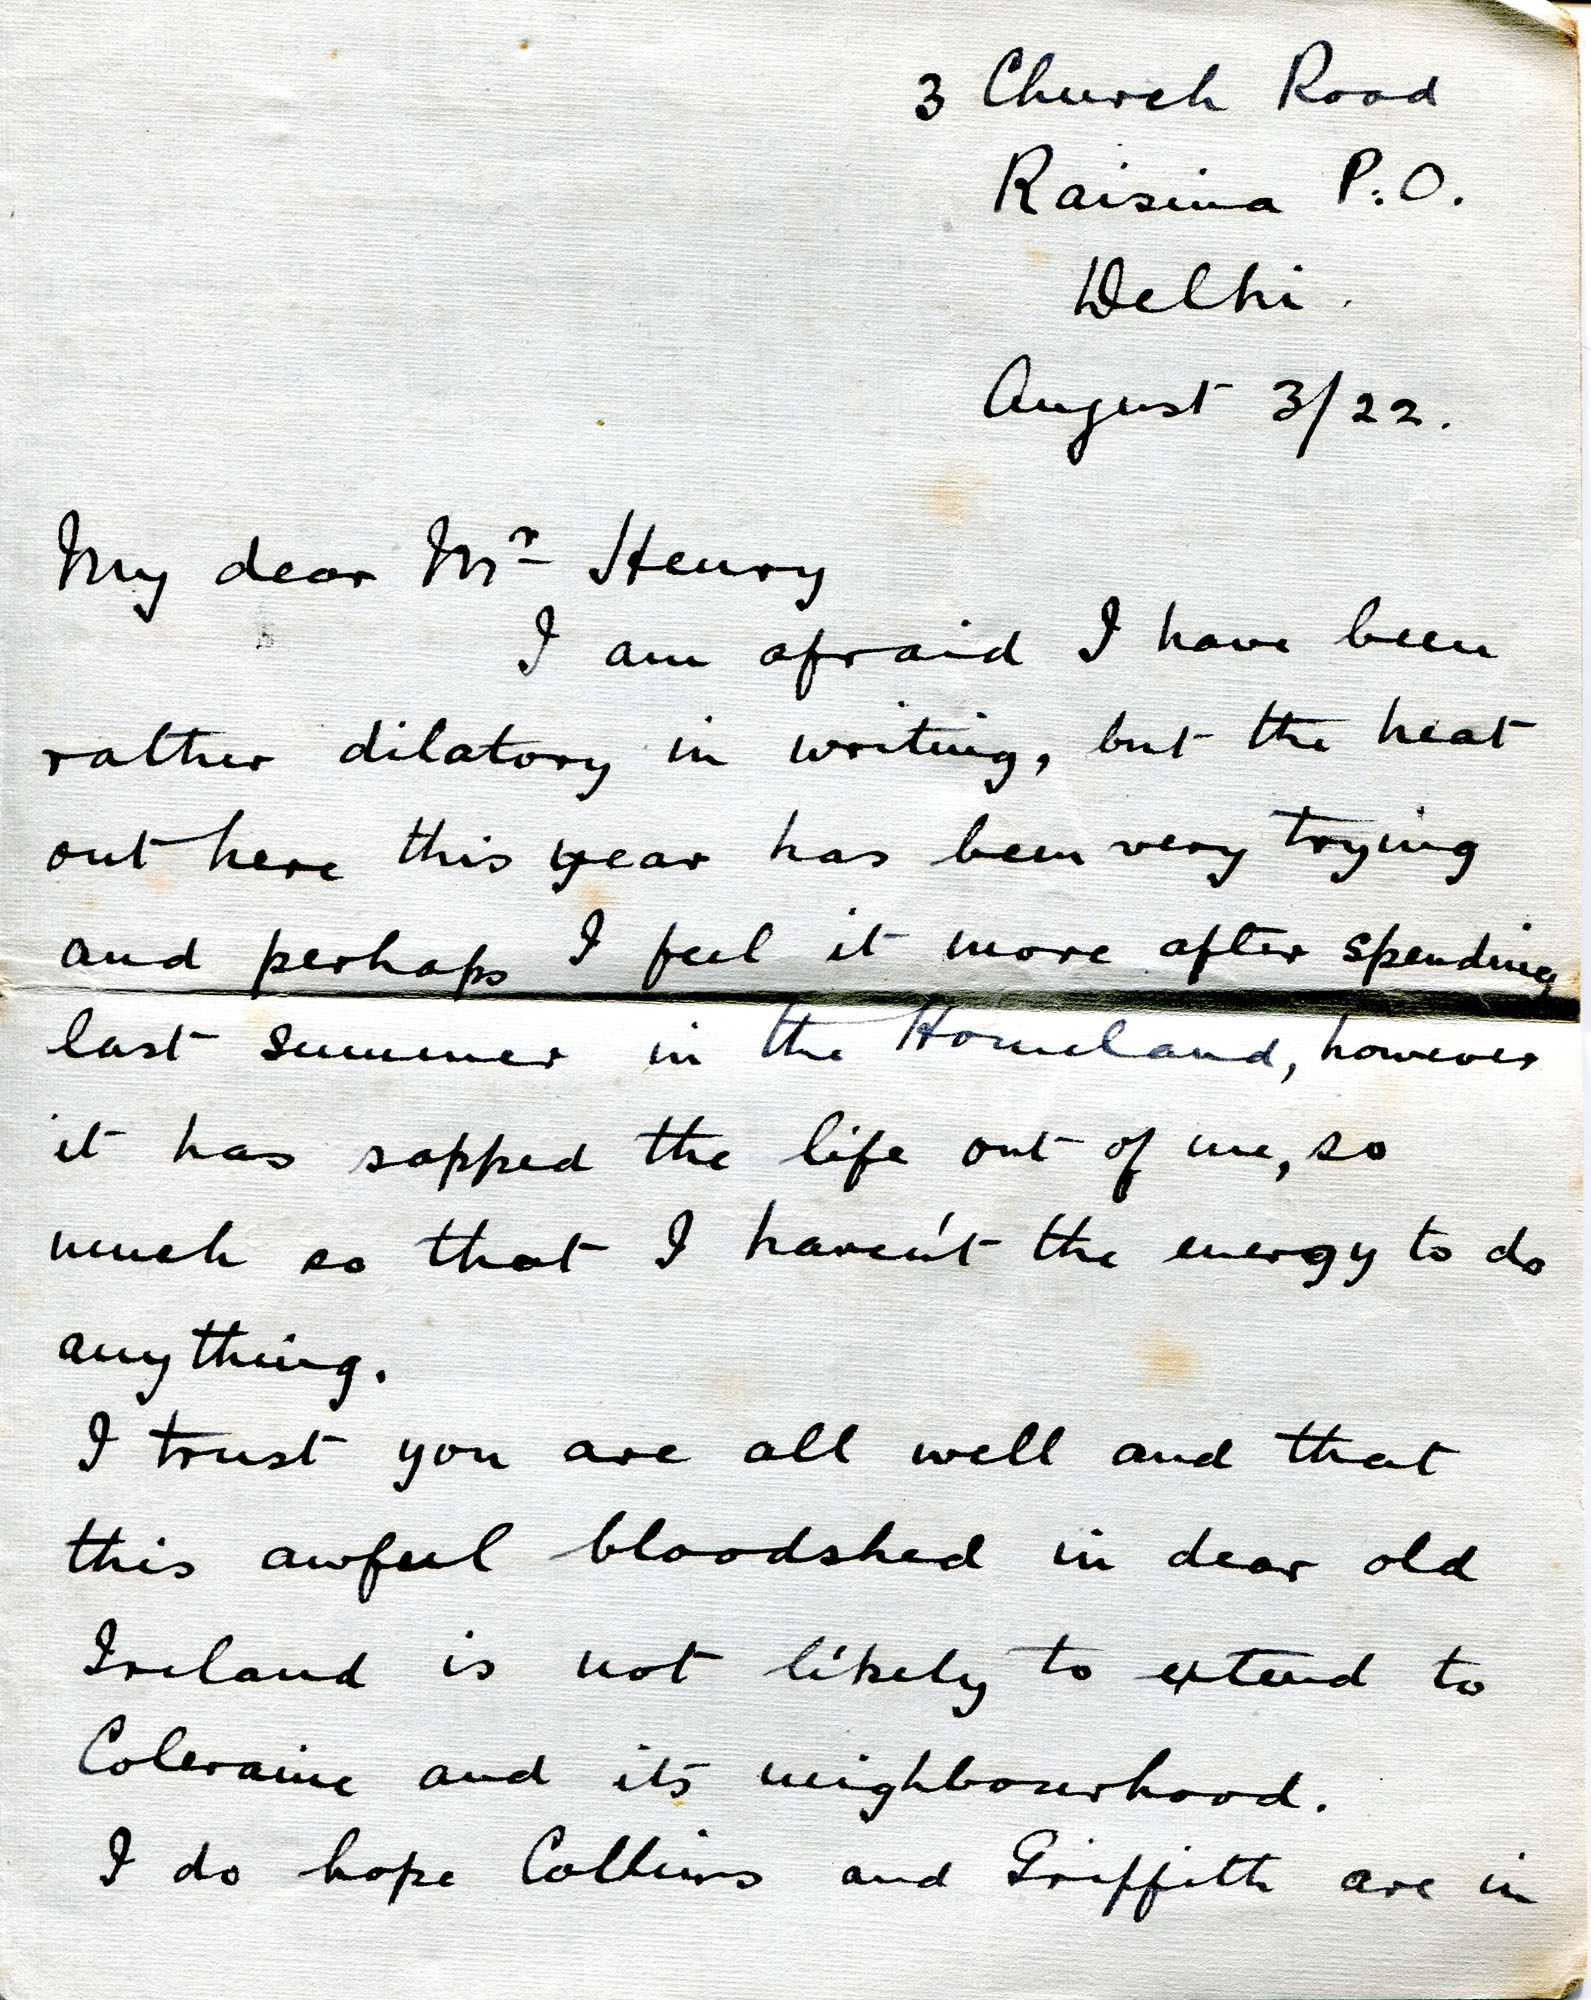 3 Church Road
Raisina P.O.
Delhi.
August 3/22.
My dear Mr Henry
I am afraid I have been
rather dilatory in writing, but the heat
out here this year has been very trying
and perhaps I feel it more after spending
last summer in the Homeland, however
it has sapped the life out of me, so
much so that I haven't the energy to do
anything.
I trust you are all well and that
this awful bloodshed in dear old
Ireland is not likely to extend to
Coleraine and its neighbourhood.
I do hope Collins and Griffith are in